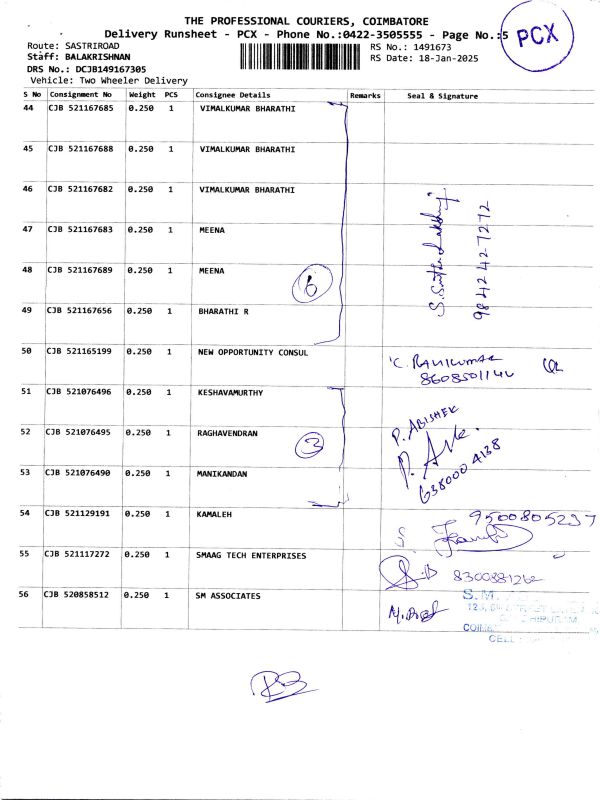 THE PROFESSIONAL COURIERS, COIMBATORE
Delivery Runsheet - PCX - Phone No.:0422-3505555 - Page No.:5
PCX
Route: SASTRIROAD
RS No.: 1491673
Staff: BALAKRISHNAN
RS Date: 18-Jan-2025
DRS No.: DCJB149167305
Vehicle: Two Wheeler Delivery
S No Consignment No Weight PCS Consignee Details Remarks Seal & Signature
44 CJB 521167685 0.250 1 VIMALKUMAR BHARATHI
45 CJB 521167688 0.250 1 VIMALKUMAR BHARATHI
46 CJB 521167682 0.250 1 VIMALKUMAR BHARATHI
47 CJB 521167683 0.250 1 MEENA
48 CJB 521167689 0.250 1 MEENA
6
49 CJB 521167656 0.250 1 BHARATHI R
9842427272
50 CJB 521165199 0.250 1 NEW OPPORTUNITY CONSUL
C. RAVIKUMAR
51 CJB 521076496 0.250 1 KESHAVAMURTHY
P. ABISHEK
52 CJB 521076495 0.250 1 RAGHAVENDRAN
3
53 CJB 521076490 0.250 1 MANIKANDAN
6380004138
54 CJB 521129191 0.250 1 KAMALEH
9500805237
55 CJB 521117272 0.250 1 SMAAG TECH ENTERPRISES
8300881262
56 CJB 520858512 0.250 1 SM ASSOCIATES
S.M.